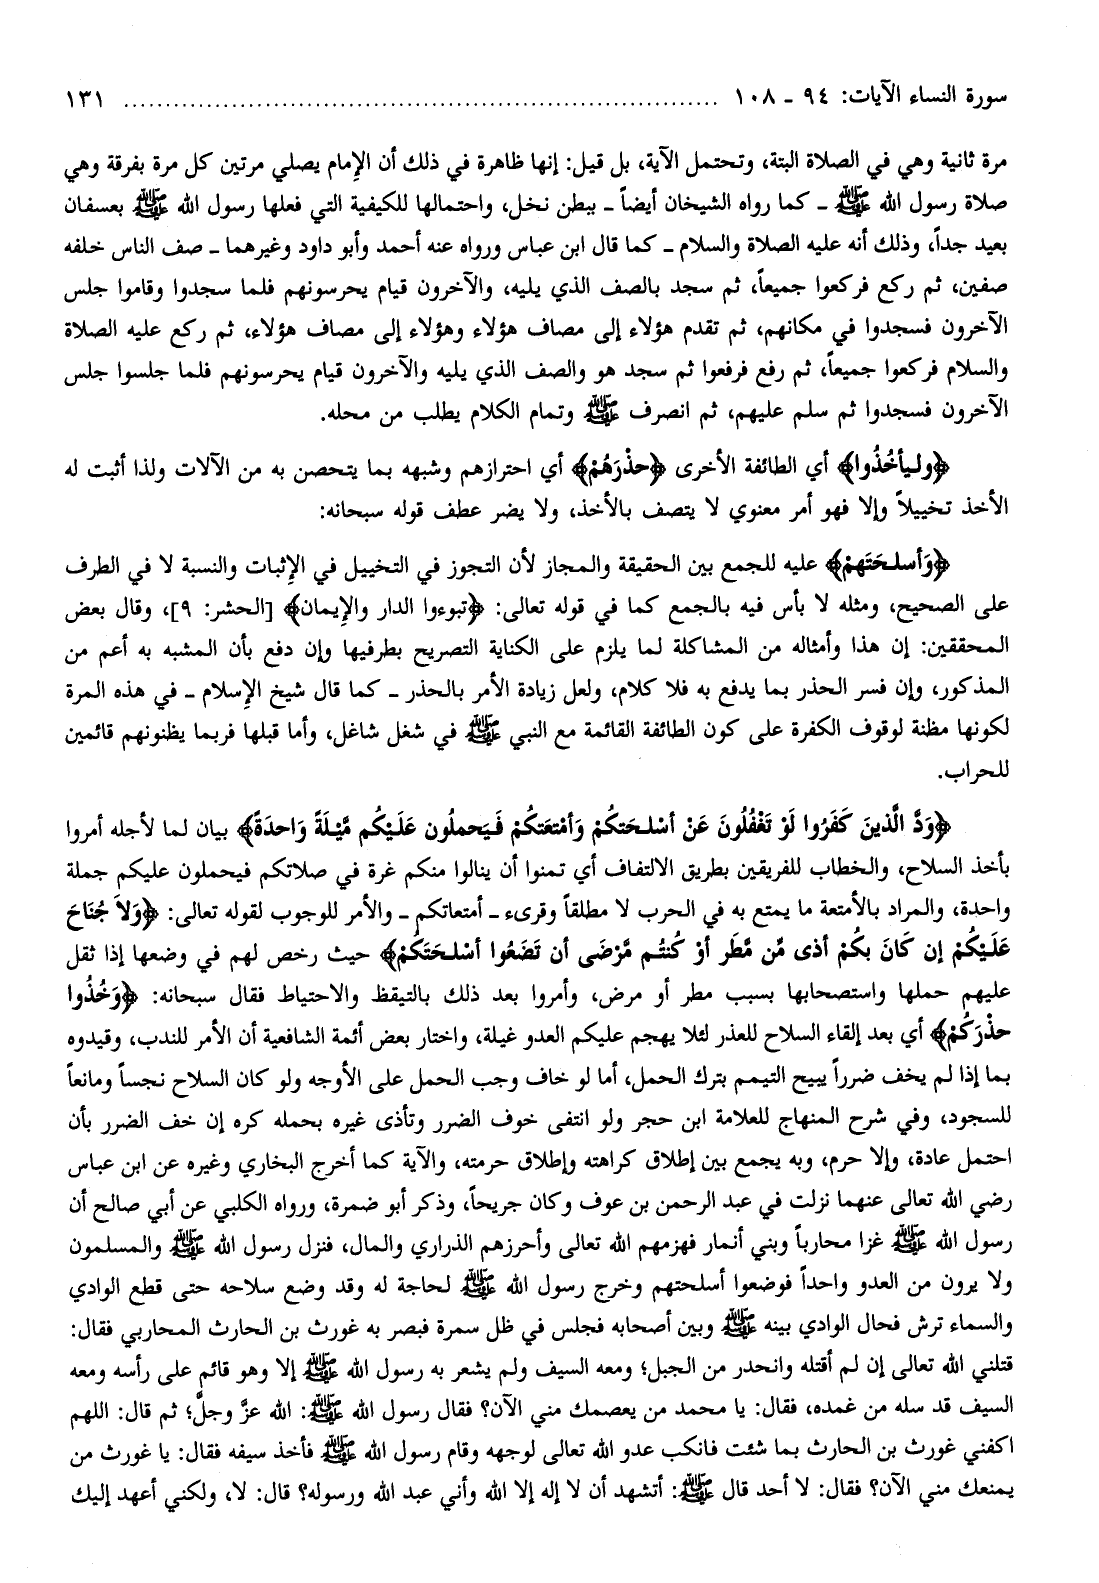 سورة النساء الآيات: ٩٤ ـ ١٠٨ ........................................................................ ١٣١
مرة ثانية وهي في الصلاة البتة، وتحتمل الآية، بل قيل: إنها ظاهرة في ذلك أن الإمام يصلي مرتين كل مرة بفرقة وهي
صلاة رسول الله ﷺ ـ كما رواه الشيخان أيضاً ـ ببطن نخل، واحتمالها للكيفية التي فعلها رسول الله ﷺ بعسفان
بعيد جداً، وذلك أنه عليه الصلاة والسلام ـ كما قال ابن عباس ورواه عنه أحمد وأبو داود وغيرهما ـ صف الناس خلفه
صفين، ثم ركع فركعوا جميعاً، ثم سجد بالصف الذي يليه، والآخرون قيام يحرسونهم فلما سجدوا وقاموا جلس
الآخرون فسجدوا في مكانهم، ثم تقدم هؤلاء إلى مصاف هؤلاء وهؤلاء إلى مصاف هؤلاء، ثم ركع عليه الصلاة
والسلام فركعوا جميعاً، ثم رفع فرفعوا ثم سجد هو والصف الذي يليه والآخرون قيام يحرسونهم فلما جلسوا جلس
الآخرون فسجدوا ثم سلم عليهم، ثم انصرف ﷺ وتمام الكلام يطلب من محله.
﴿وليأخُذُوا﴾ أي الطائفة الأخرى ﴿حذْرَهُمْ﴾ أي احترازهم وشبهه بما يتحصن به من الآلات ولذا أثبت له
الأخذ تخييلاً وإلا فهو أمر معنوي لا يتصف بالأخذ، ولا يضر عطف قوله سبحانه:
﴿وَأسلحَتَهمْ﴾ عليه للجمع بين الحقيقة والمجاز لأن التجوز في التخييل في الإثبات والنسبة لا في الطرف
على الصحيح، ومثله لا بأس فيه بالجمع كما في قوله تعالى: ﴿تبوءوا الدار والإيمان﴾ [الحشر: ٩]، وقال بعض
المحققين: إن هذا وأمثاله من المشاكلة لما يلزم على الكناية التصريح بطرفيها وإن دفع بأن المشبه به أعم من
المذكور، وإن فسر الحذر بما يدفع به فلا كلام، ولعل زيادة الأمر بالحذر ـ كما قال شيخ الإسلام ـ في هذه المرة
لكونها مظنة لوقوف الكفرة على كون الطائفة القائمة مع النبي ﷺ في شغل شاغل، وأما قبلها فربما يظنونهم قائمين
للحراب.
﴿وَدَّ الَّذينَ كَفَرُوا لَوْ تَغْفُلُونَ عَنْ أسْلحَتكُمْ وَأمْتَعَتكُمْ فَيَحملُون عَلَيْكُم مَّيْلَةً وَاحدَةً﴾ بيان لما لأجله أمروا
بأخذ السلاح، والخطاب للفريقين بطريق الالتفاف أي تمنوا أن ينالوا منكم غرة في صلاتكم فيحملون عليكم جملة
واحدة، والمراد بالأمتعة ما يمتع به في الحرب لا مطلقاً وقرىء ـ أمتعاتكم ـ والأمر للوجوب لقوله تعالى: ﴿وَلاَ جُنَاحَ
عَلَيْكُمْ إن كَانَ بكُمْ أذى مِّن مَّطَر أوْ كُنتُم مَّرْضَى أن تَضَعُوا أسْلحَتَكُمْ﴾ حيث رخص لهم في وضعها إذا ثقل
عليهم حملها واستصحابها بسبب مطر أو مرض، وأمروا بعد ذلك بالتيقظ والاحتياط فقال سبحانه: ﴿وَخُذُوا
حذْرَكُمْ﴾ أي بعد إلقاء السلاح للعذر لئلا يهجم عليكم العدو غيلة، واختار بعض أئمة الشافعية أن الأمر للندب، وقيدوه
بما إذا لم يخف ضرراً يبيح التيمم بترك الحمل، أما لو خاف وجب الحمل على الأوجه ولو كان السلاح نجساً ومانعاً
للسجود، وفي شرح المنهاج للعلامة ابن حجر ولو انتفى خوف الضرر وتأذى غيره بحمله كره إن خف الضرر بأن
احتمل عادة، وإلا حرم، وبه يجمع بين إطلاق كراهته وإطلاق حرمته، والآية كما أخرج البخاري وغيره عن ابن عباس
رضي الله تعالى عنهما نزلت في عبد الرحمن بن عوف وكان جريحاً، وذكر أبو ضمرة، ورواه الكلبي عن أبي صالح أن
رسول الله ﷺ غزا محارباً وبني أنمار فهزمهم الله تعالى وأحرزهم الذراري والمال، فنزل رسول الله ﷺ والمسلمون
ولا يرون من العدو واحداً فوضعوا أسلحتهم وخرج رسول الله ﷺ لحاجة له وقد وضع سلاحه حتى قطع الوادي
والسماء ترش فحال الوادي بينه ﷺ وبين أصحابه فجلس في ظل سمرة فبصر به غورث بن الحارث المحاربي فقال:
قتلني الله تعالى إن لم أقتله وانحدر من الجبل؛ ومعه السيف ولم يشعر به رسول الله ﷺ إلا وهو قائم على رأسه ومعه
السيف قد سله من غمده، فقال: يا محمد من يعصمك مني الآن؟ فقال رسول الله ﷺ: الله عزَّ وجلَّ؛ ثم قال: اللهم
اكفني غورث بن الحارث بما شئت فانكب عدو الله تعالى لوجهه وقام رسول الله ﷺ فأخذ سيفه فقال: يا غورث من
يمنعك مني الآن؟ فقال: لا أحد قال ﷺ: أتشهد أن لا إله إلا الله وأني عبد الله ورسوله؟ قال: لا، ولكني أعهد إليك